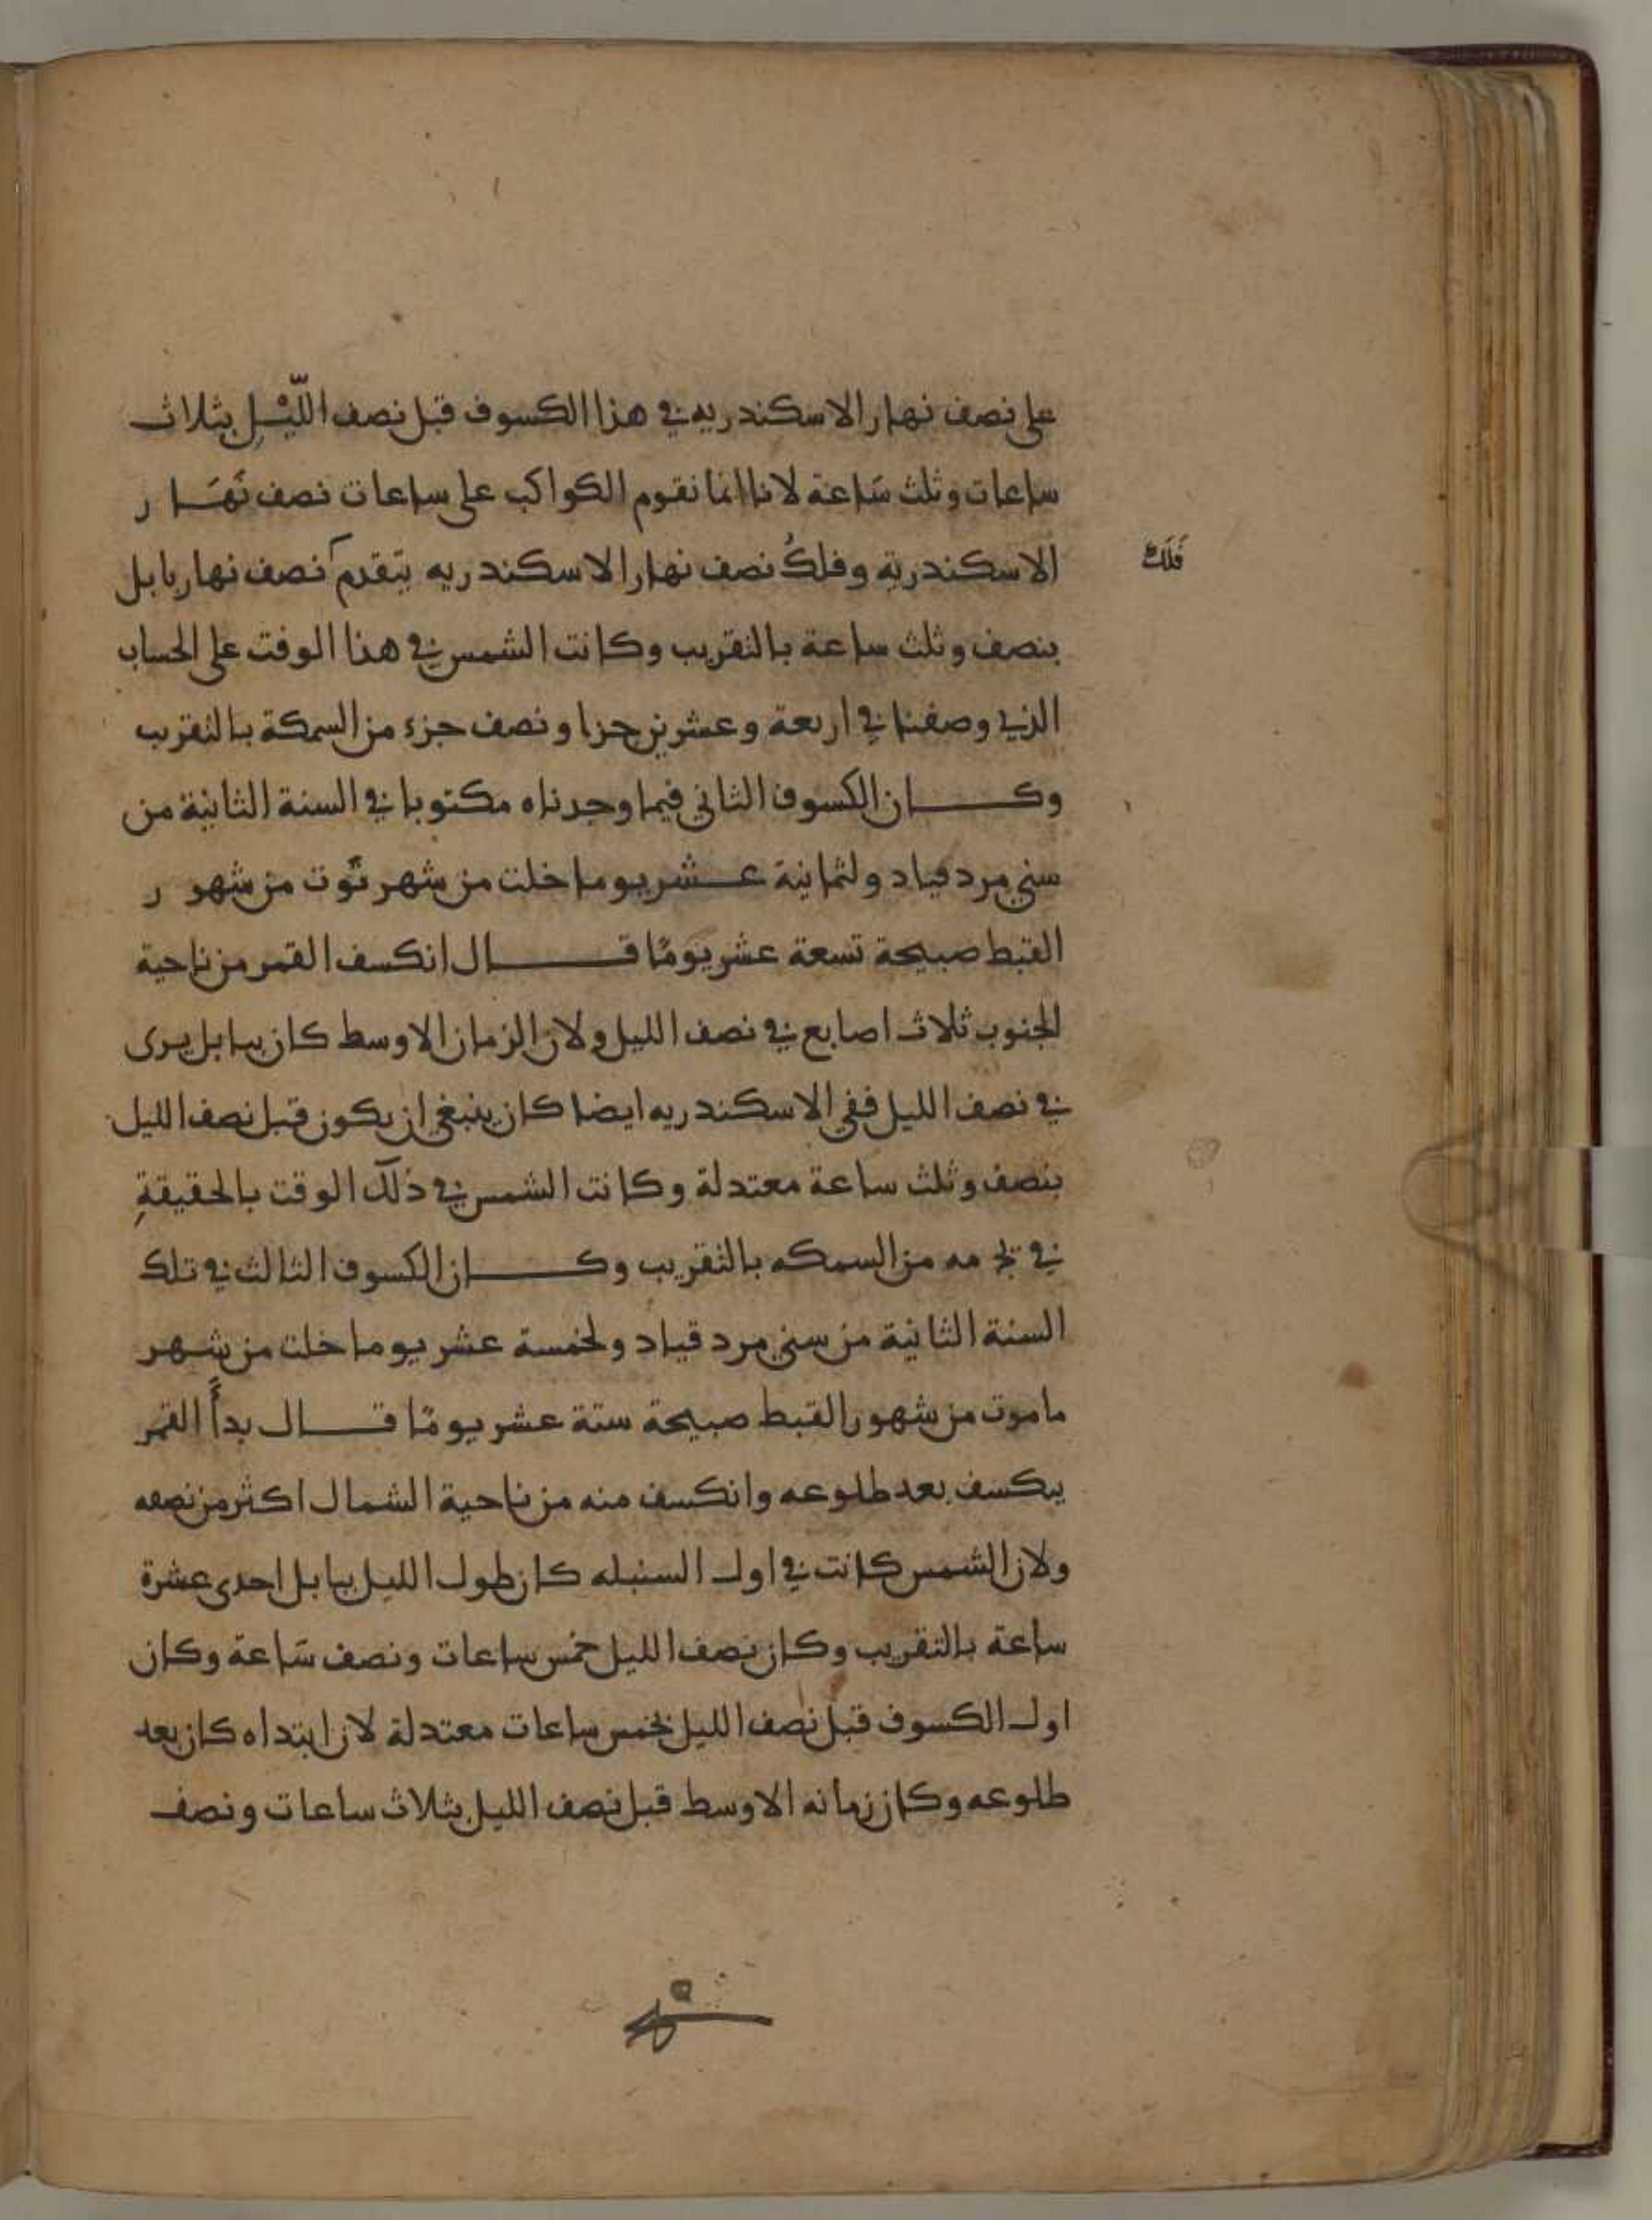 على نصف نهار الاسكندريه في هذا الكسوف قبل نصف اللّيْل بثلاث
ساعات وثلث سَاعة لانا انما نقوم الكواكب على ساعات نصف نَهَار
الاسكندرية وفلكُ نصف نهار الاسكندريه يتقدم نصف نهار بابل
فَلَك
بنصف وثلث ساعة بالتقريب وكانت الشمس في هذا الوقت على الحساب
الذي وصفنا في اربعة وعشرين جزا ونصف جزء من السمكة بالتقريب
وكان الكسوف الثاني فيما وجدناه مكتوبا في السنة الثانية من
سني مرد قياد ولثمانية عشر يوما خلت من شهر توت من شهور
القبط صبيحة تسعة عشر يومًا قال انكسف القمر من ناحية
الجنوب ثلاث اصابع في نصف الليل ولان الزمان الاوسط كان ببابل يرى
في نصف الليل ففي الاسكندريه ايضا كان ينبغي ان يكون قبل نصف الليل
بنصف وثلث ساعة معتدلة وكانت الشمس في ذلك الوقت بالحقيقةِ
في يج مه من السمكه بالتقريب وكان الكسوف الثالث في تلك
السنة الثانية من سني مرد قياد ولخمسة عشر يوما خلت من شهر
ماموت من شهور القبط صبيحة ستة عشر يومًا قال بدأ القمر
يكسف بعد طلوعه وانكسف منه من ناحية الشمال اكثر من نصفه
ولان الشمس كانت في اول السنبله كان طول الليل ببابل احدى عشرة
ساعة بالتقريب وكان نصف الليل خمس ساعات ونصف سَاعة وكان
اول الكسوف قبل نصف الليل بخمس ساعات معتدلة لان ابتداه كان بعد
طلوعه وكان زمانه الاوسط قبل نصف الليل بثلاث ساعات ونصف